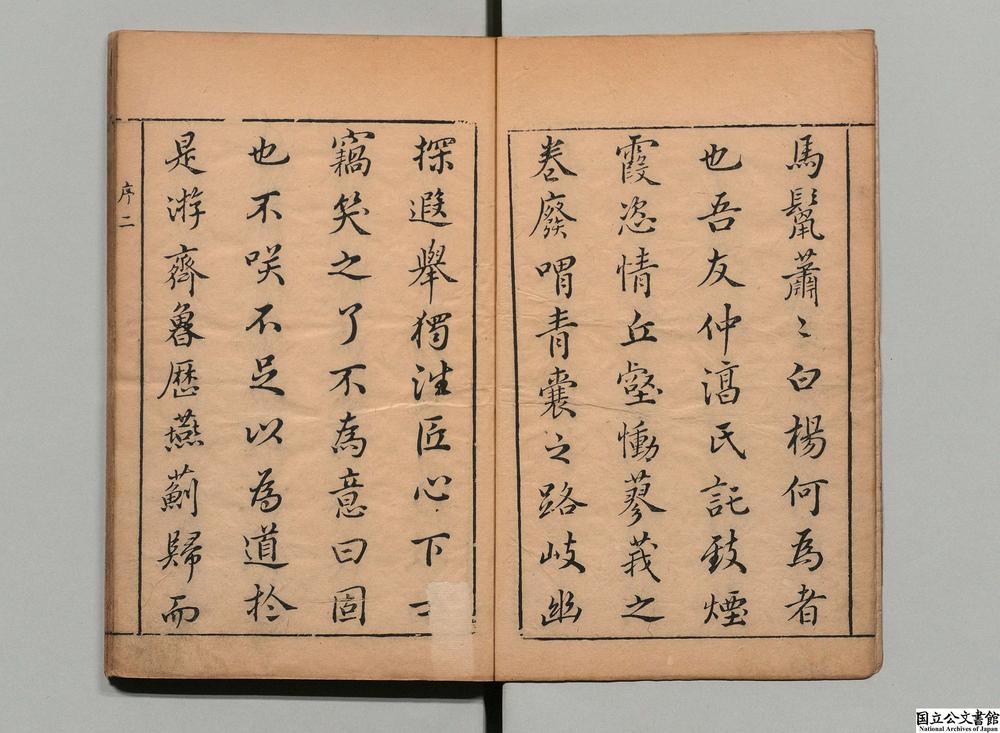 馬鬣蕭〻白楊何為者
也吾友仲湻氏託致煙
霞恣情丘壑慟蓼莪之
巻廢喟青囊之路岐幽
探遐舉獨注匠心下
竊笑之了不為意曰固
也不咲不足以為道於
是游齊魯歷燕薊歸而
序二
国立公文書館
National Archives of Japan